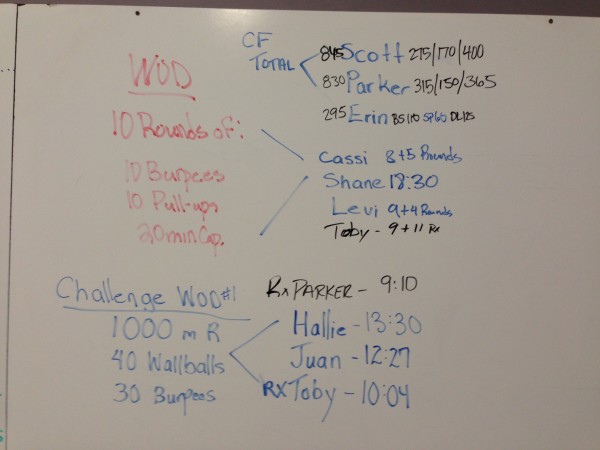 CF
TOTAL
845 Scott 275/170/400
830 Parker 315/150/365
295 Erin BS 110 SP60 DL125
WOD
10 Rounds of:
10 Burpees
10 Pull-ups
20 min Cap.
Cassi 8+5 Rounds
Shane 18:30
Levi 9+4 Rounds
Toby - 9+11 Rx
Challenge WOD #1
1000 m R
40 Wallballs
30 Burpees
Rx PARKER - 9:10
Hallie - 13:30
Juan - 12:27
RX Toby - 10:04